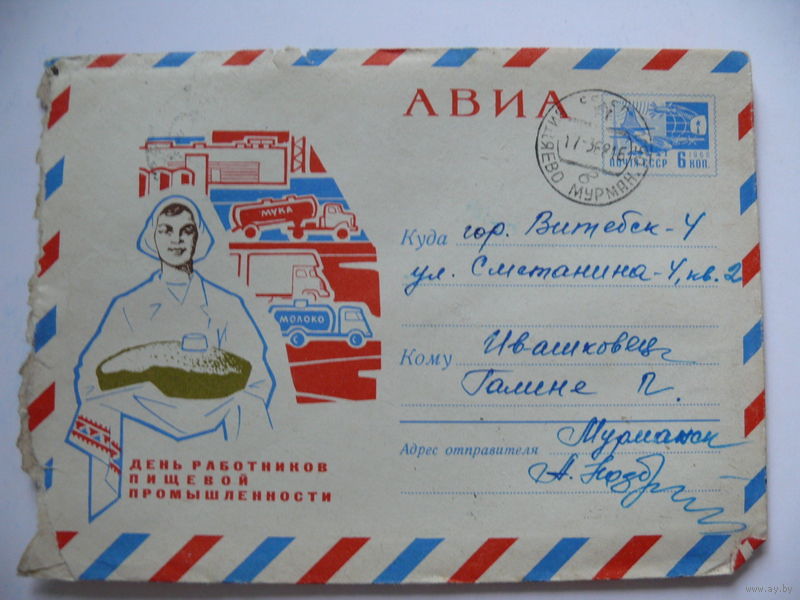 АВИА
ПОЧТА СССР
1966
6 КОП.
МУРМАН.
МУКА
МОЛОКО
Куда гор. Витебск-4
ул. Сметанина-4, кв. 2
Кому Ивашковец
Галине П.
Адрес отправителя Мурманск
А.
ДЕНЬ РАБОТНИКОВ
ПИЩЕВОЙ
ПРОМЫШЛЕННОСТИ
www.ay.by